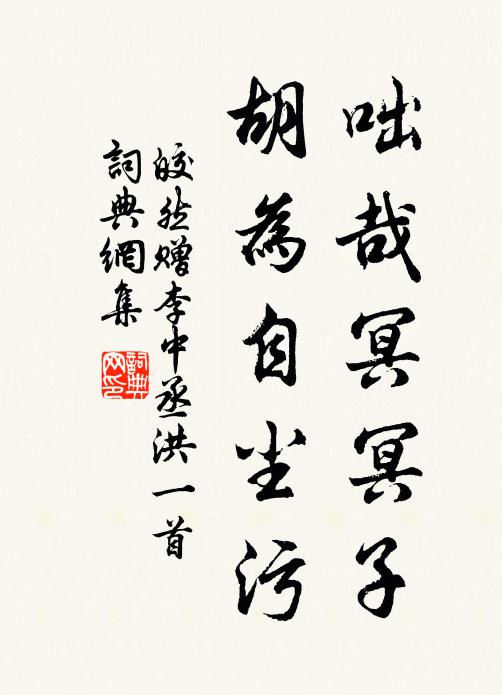 咄哉冥冥子
胡為自坐污
皎然贈李中丞洪一首
詞典網集
詞典
网印